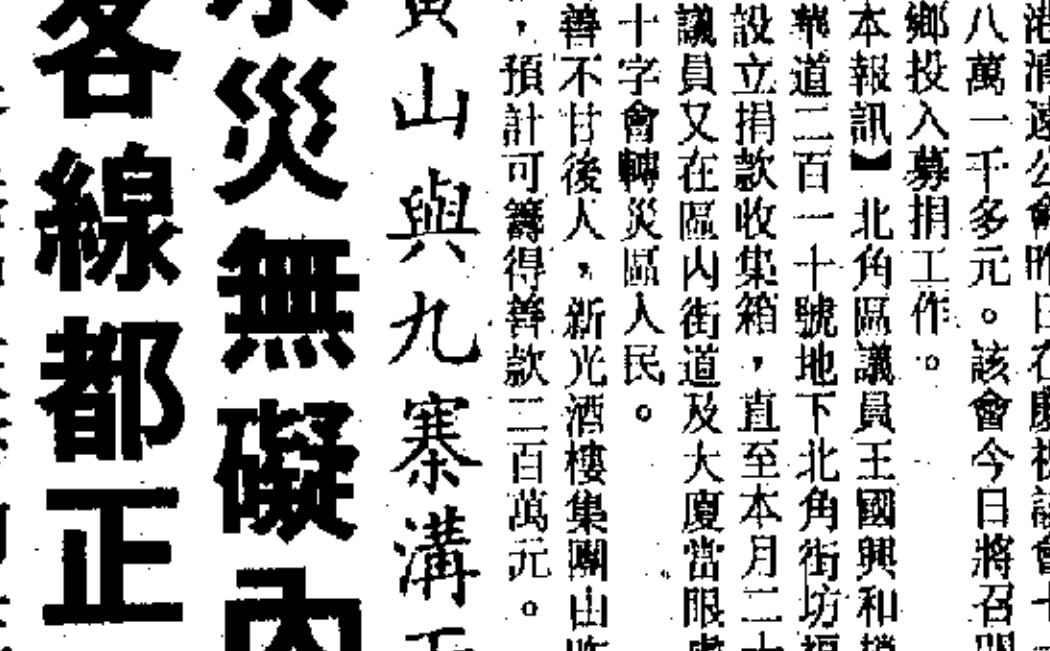 港清遠公會昨日在慶祝該會十
八萬一千多元。該會今日將召開
鄉投入募捐工作。
本報訊】北角區議員王國興和趙
華道二百一十號地下北角街坊福
設立捐款收集箱，直至本月二十
議員又在區內街道及大廈當眼處
十字會轉災區人民。
善不甘後人，新光酒樓集團山
，預計可籌得善款二百萬元。
黃山與九寨溝
水災無礙內
客線都正